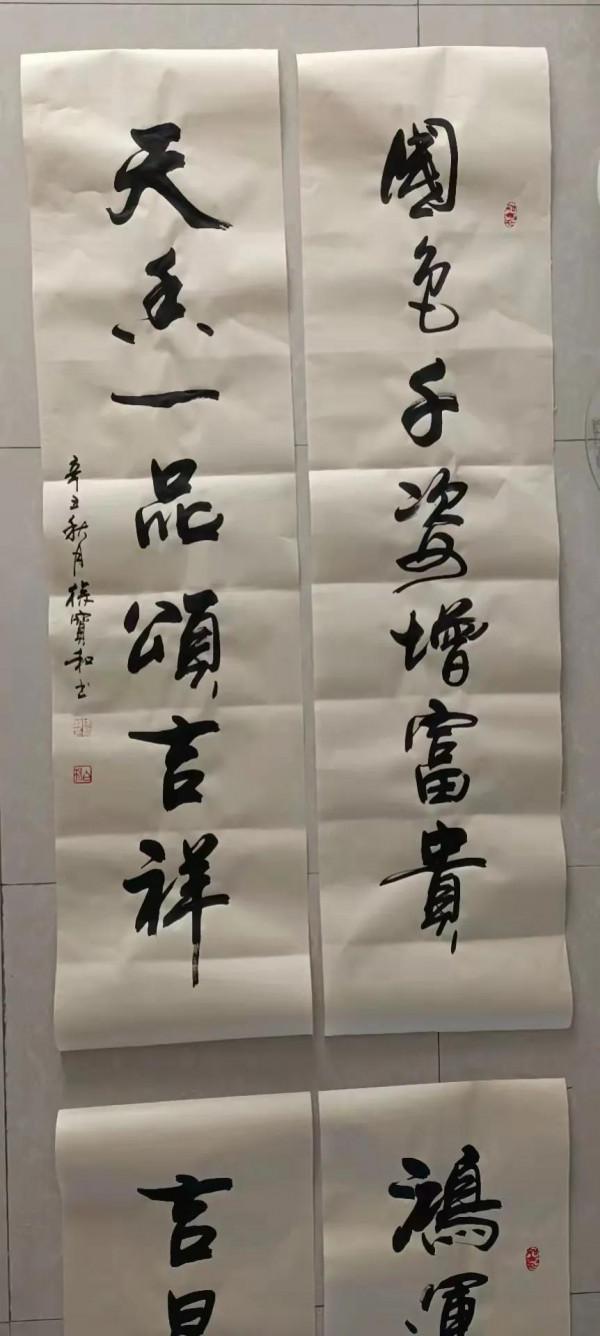 國色千姿增富貴
天香一品頌吉祥
辛丑秋月 寶和书
鴻運
吉